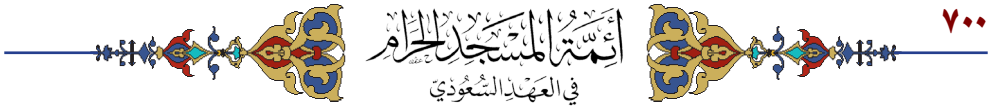 ٧٠٠
أَئِمَّةُ المَسْجِدِ الحَرَامِ
فِي العَهْدِ السُّعُودِيِّ